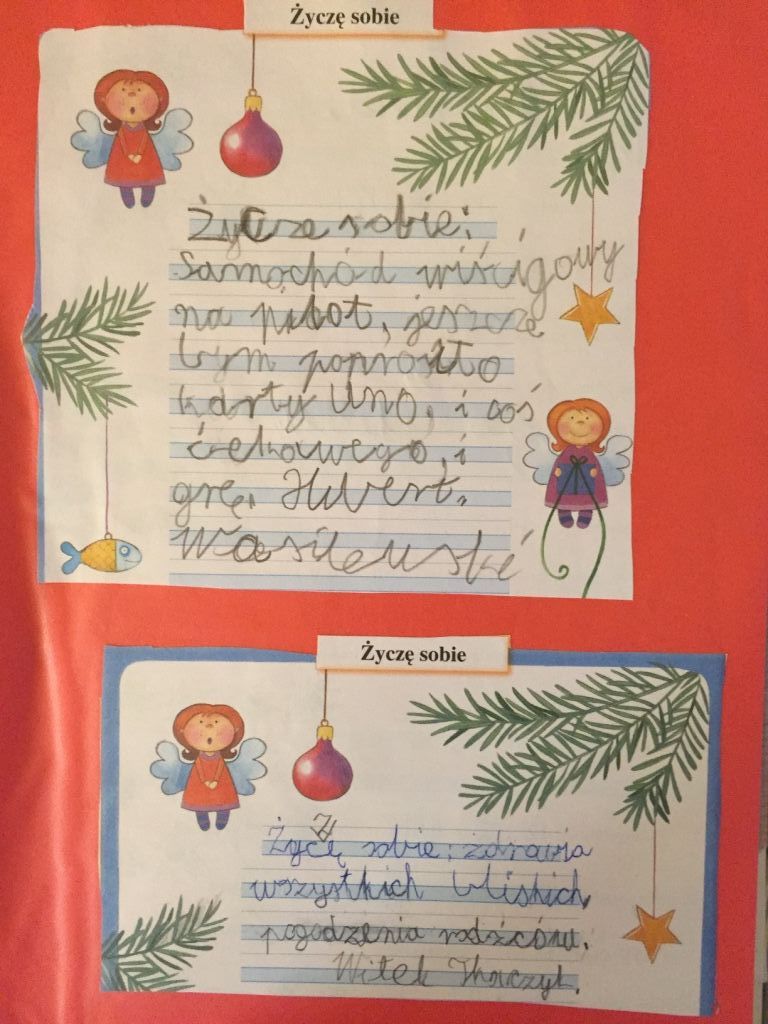 Życzę sobie
Życze sobie:
Samochód wiścigowy
na pilot, jeszcze
bym poprosił o
karty Uno, i coś
ćekawego, i
grę. Hubert.
Wasilewski
Życzę sobie
Życzę sobie: zdrowia
wszystkich bliskich,
pogodzenia rodziców.
Witek